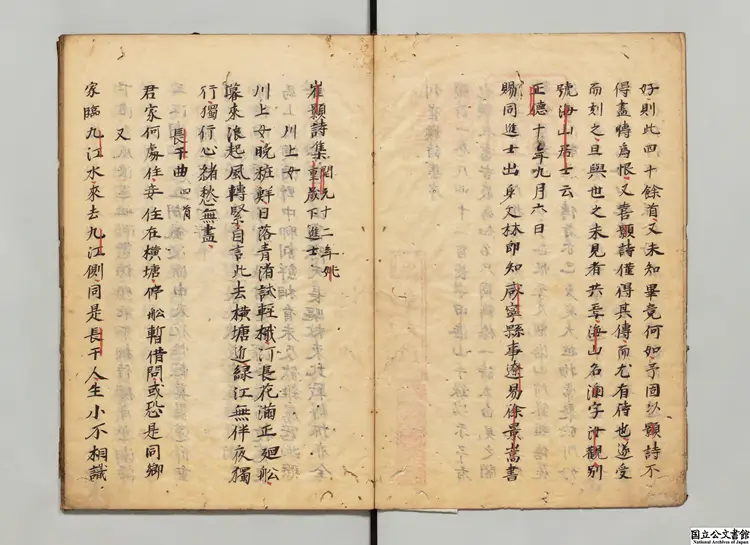 好則此四十餘首又未知畢竟何如予固以顥詩不
得盡傳爲恨又喜顥詩僅得其傳而尤有待也遂受
而刻之且與世之未見者共焉海山名滴字汝觀別
號海山居士云
正德十年九月六日
賜同進士出身文林郎知咸寧縣事遼易徐景嵩書
崔顥詩集 開元十二年姚重晟下進士
川上女
川上女晚粧鮮日落青渚試輕檝汀長花滿正廻舩
暮來浪起風轉緊自言此去橫塘近綠江無伴夜獨
行獨行心緒愁無盡
長干曲四首
君家何處住妾住在橫塘停舩暫借問或恐是同鄉
又
家臨九江水來去九江側同是長干人生小不相識
国立公文書館
National Archives of Japan